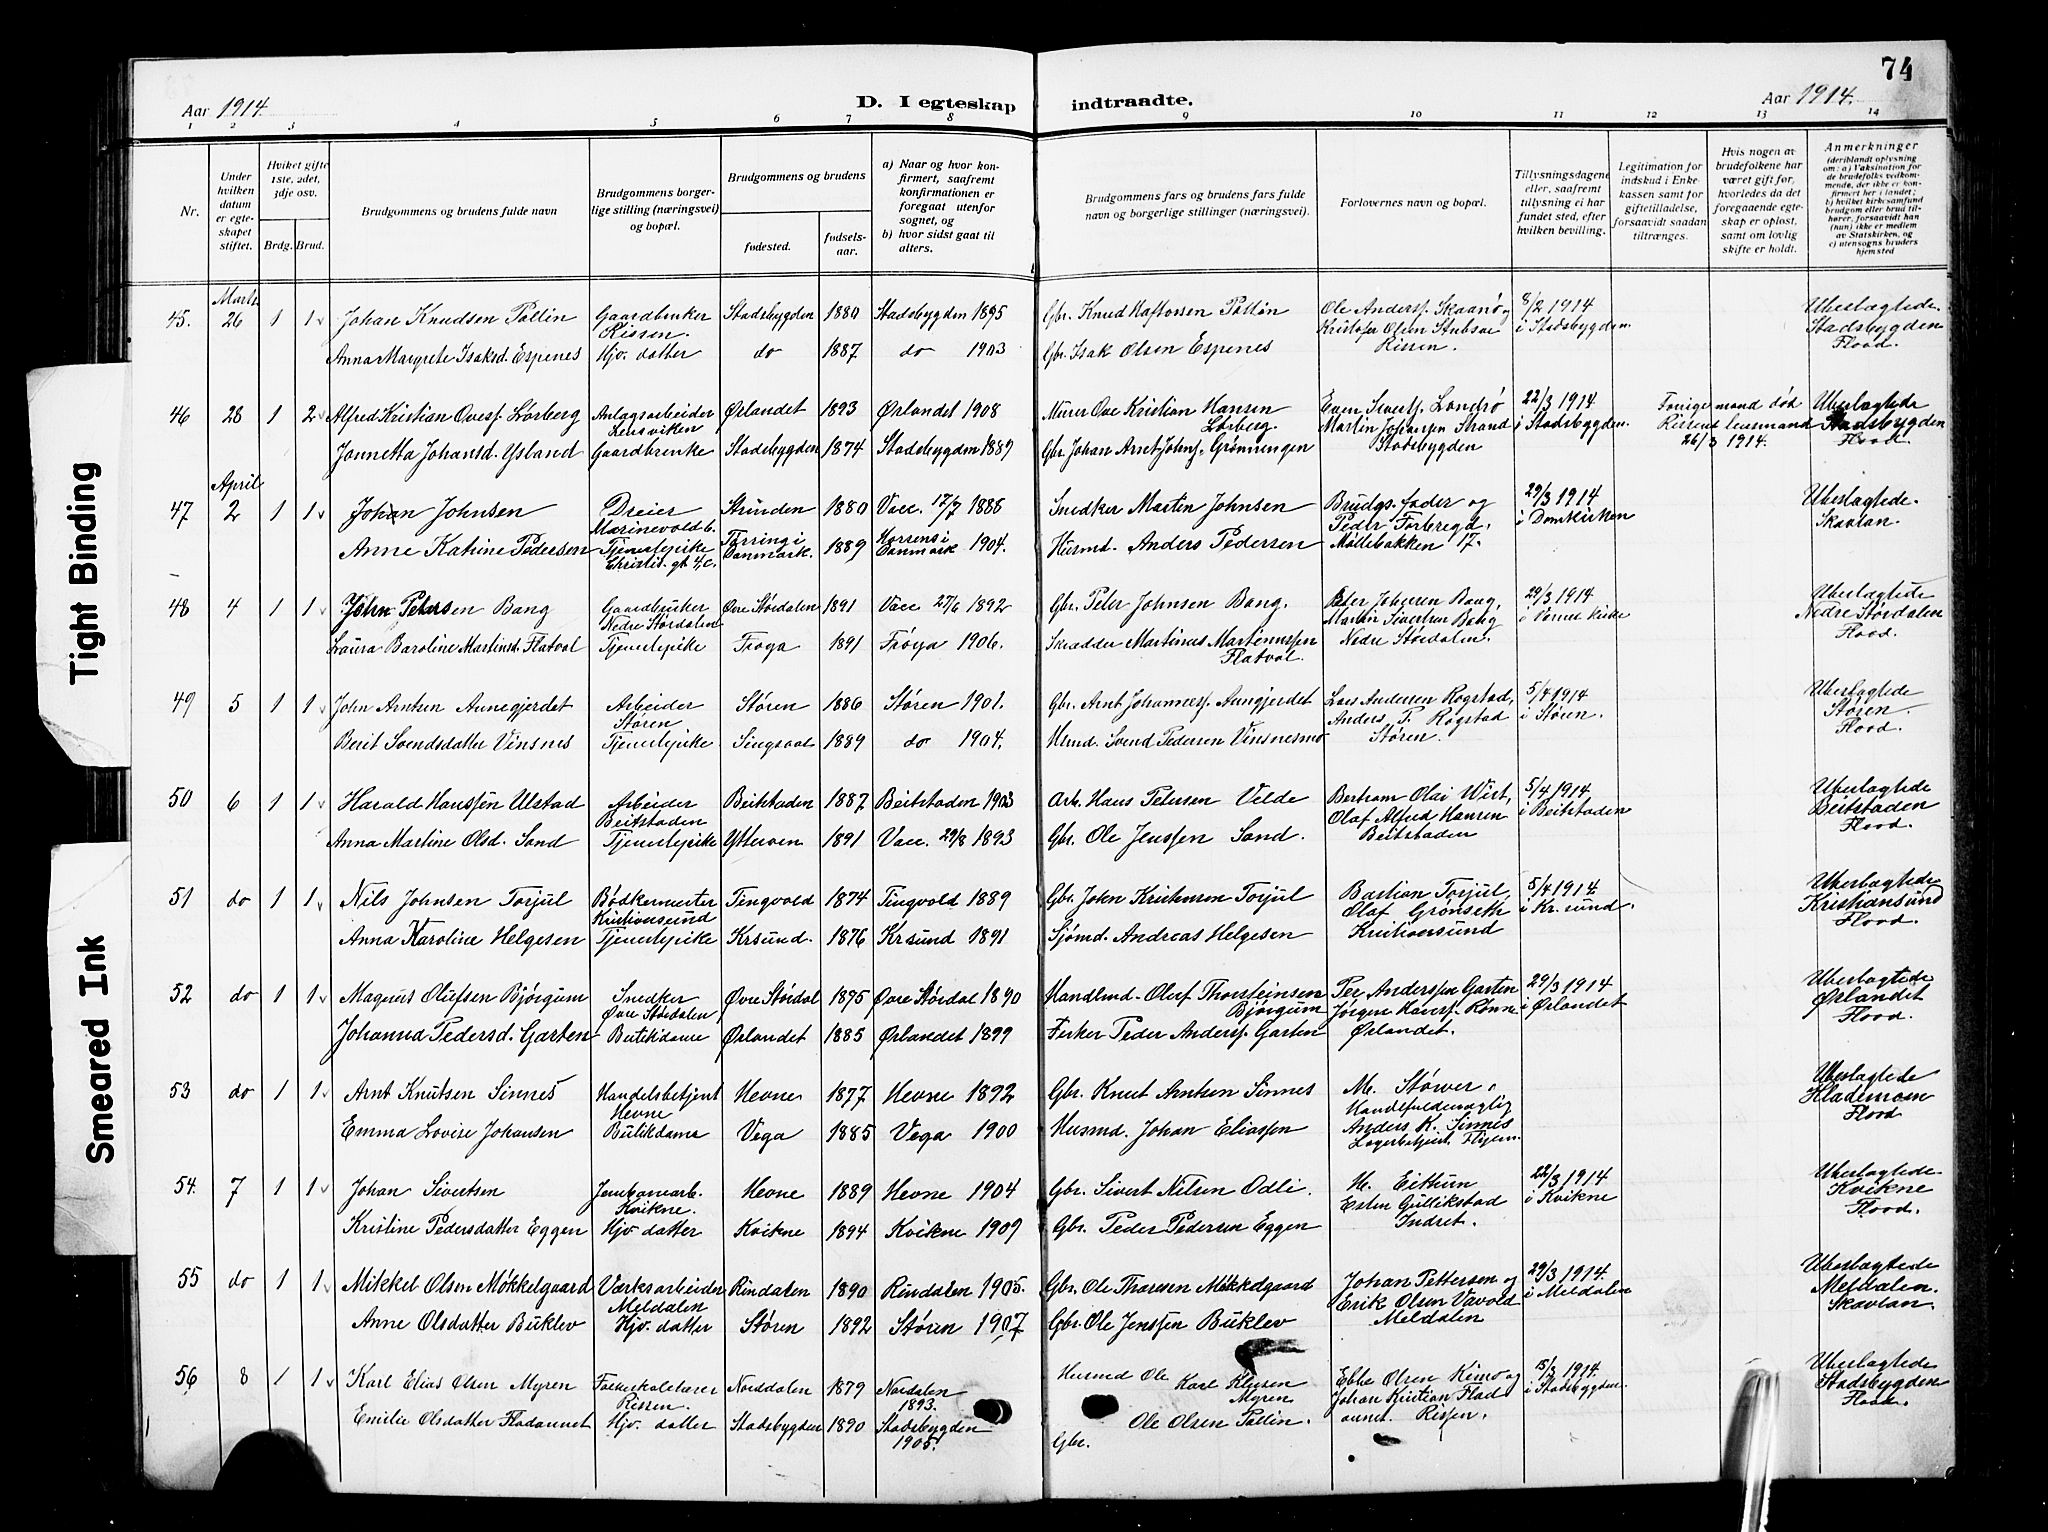 74
Aar 1914. D. I egteskap indtraadte. Aar 1914.
1 2 3 4 5 6 7 8 9 10 11 12 13 14
Nr.
Under hvilken datum er egteskapet stiftet.
Hviket gifte 1ste, 2det, 3dje osv.
Brdg. Brud.
Brudgommens og brudens fulde navn
Brudgommens borgerlige stilling (næringsvei) og bopæl.
Brudgommens og brudens
fødested. fødselsaar.
a) Naar og hvor konfirmert, saafremt konfirmationen er foregaat utenfor sognet, og
b) hvor sidst gaat til alters.
Brudgommens fars og brudens fars fulde navn og borgerlige stillinger (næringsvei).
Forlovernes navn og bopæl.
Tillysningsdagene eller, saafremt tillysning ei har fundet sted, efter hvilken bevilling.
Legitimation for indskud i Enkekassen samt for giftetilladelse, forsaavidt saadan tiltrænges.
Hvis nogen av brudefolkene har været gift før, hvorledes da det foregaaende egteskap er opløst, samt om lovlig skifte er holdt.
Anmerkninger
(deriblandt oplysning om: a) Vaksination for de brudefolks vedkommende, der ikke er konfirmert her i landet; b) hvilket kirkesamfund brudgom eller brud tilhører, forsaavidt han (hun) ikke er medlem av Statskirken, og c) utensogns bruders hjemsted
Marts
45. 26 1 1 Johan Knudsen Pallin Gaardbruker Rissen. Stadsbygden 1880 Stadsbygden 1895 Gbr. Knud Haftorsen Pallin Ole Andersp. Skaanø 8/2 1914 Ubeslagtede.
Anna Margrete Isaksd. Espenes Hjv. datter do 1887 do 1903 Gbr. Isak Olsen Espenes Kristofer Olsen Stubsae Rissen. i Stadsbygden. Stadsbygden Flood.
46 28 1 2 Alfred Kristian Ovesp. Lørberg Anlagsarbeider Lensviken Ørlandet 1893 Ørlandet 1908 Murer Ove Kristian Hansen Lørberg. Even Sivertp. Londrø 22/3 1914 Forrige mand død Ubeslagtede
Jonnetta Johansd. Ysland Gaardbrenke Stadsbygden 1874 Stadsbygden 1889 Gbr. Johan Arnt Johnsp. Grønningen Martin Johansen Strand Stadsbygden i Stadsbygden. Rissens lensmand 26/3 1914. Stadsbygden Flood.
April
47 2 1 1 Johan Johnsen Dreier Marinevold 6. Strinden 1880 Vacc. 17/7 1888 Snedker Martin Johnsen Brudgs. fader og 29/3 1914 Ubeslagtede.
Anne Katrine Pedersen Tjenestepike Christis. gt 4,c. Tørring i Danmark. 1889 Horsens i Danmark 1904. Husmd. Anders Pedersen Peder Forbregd. Møllebakken 17. i Domkirken Skavlan.
48 4 1 1 John Petersen Bang Gaardbruker Nedre Størdalen Øvre Størdalen 1891 Vacc. 27/6 1892 Gbr. Peter Johnsen Bang. Peter Johnsen Bang, 29/3 1914 Ubeslagtede
Laura Baroline Martinsd. Flatval Tjenestepike Frøya 1891 Frøya 1906. Skrædder Martinus Martinussen Flatval. Martin Sivertsen Bang Nedre Størdalen. i Værnes kirke Nedre Størdalen Flood.
49 5 1 1 John Arntsen Aunegjerdet Arbeider Støren Støren 1886 Støren 1901. Gbr. Arnt Johannesp. Aungjerdet Lars Andersen Rogstad, 5/4 1914 Ubeslagtede
Berit Svendsdatter Vinsnes Tjenestepike. Singsaas 1889 do 1904. Husmd. Svend Pedersen Vinsnesmo Anders P. Rogstad Støren. i Støren. Støren. Flood.
50 6 1 1 Harald Hanssen Ulstad Arbeider Beitstaden Beitstaden 1887 Beitstaden 1903 Arb. Hans Petersen Velde Bertram Olai Wist, 5/4 1914. Ubeslagtede
Anna Martine Olsd. Sand Tjenestepike Ytterøen 1891 Vacc. 29/8 1893 Gbr. Ole Jenssen Sand. Olaf Alfred Hansen Beitstaden i Beitstaden Beitstaden Flood.
51 do 1 1 Nils Johnsen Torjul Bødkermester Kristiansund Tingvold 1874 Tingvold 1889 Gbr. John Kristensen Torjul Bastian Torjul, 5/4 1914. Ubeslagtede
Anna Karoline Helgesen Tjenestepike Krsund. 1876 Krsund 1891 Sjømd. Andreas Helgesen Olaf Grønseth Kristiansund i Kr. sund. Kristiansund Flood.
52 do 1 1 Magnus Olufsen Bjørgum Snedker Øvre Størdalen Øvre Størdal 1875 Øvre Størdal 1890 Handlmd. Oluf Thorsteinsen Bjørgum Per Anderssen Garten 29/3 1914 Ubeslagtede
Johanna Pedersd. Garten Butikdame Ørlandet 1885 Ørlandet 1899 Fisker Peder Andersp. Garten Jørgen Havesp. Rønne Ørlandet. i Ørlandet Ørlandet Flood.
53 do 1 1 Arnt Knutsen Sinnes Handelsbetjent Hevne Hevne 1877 Hevne 1892 Gbr. Knut Arntsen Sinnes M. Størver, Ubeslagtede
Emma Lovise Johansen Butikdame Vega 1885 Vega 1900 Husmd. Johan Eliassen Handelsfuldmægtig Anders K. Sinnes Lagerbetjent. Hlademoen Flood
54. 7 1 1 Johan Sivertsen Jernbanearb. Kvikne. Hevne 1889 Hevne 1904 Gbr. Sivert Nilsen Odli. H. Eithun 22/3 1914 Ubeslagtede.
Kristine Pedersdatter Eggen Hjv. datter Kvikne 1894 Kvikne 1909 Gbr. Peder Pedersen Eggen Esten Gullikstad Indset. i Kvikne Kvikne Flood.
55 do 1 1 Mikkel Olsen Møkkelgaard Verksarbeider Meldalen Rindalen 1890 Rindalen 1905. Gbr. Ole Thoresen Møkkelgaard Johan Pettersen og 29/3 1914. Ubeslagtede
Anne Olsdatter Buklev Hjv. datter Støren 1892 Støren 1907 Gbr. Ole Jenssen Buklev Erik Olsen Vavold Meldalen i Meldalen Meldalen. Skavlan.
56 8 1 1 Karl Elias Olsen Myren Folkeskolelærer Rissen. Norddalen 1879 Nordalen 1893. Husmd Ole Karl Elgsen Myren Ebbe Olsen Reinso og 15/3 1914. Ubeslagtede
Emilie Olsdatter Fladaunet Hjv. datter Stadsbygden 1890 Stadsbygden 1905. Gbr. Ole Olsen Pallin. Johan Kristian Flad aunet. Rissen. i Stadsbygden. Stadsbygden Flood.
Tight Binding
Smeared Ink